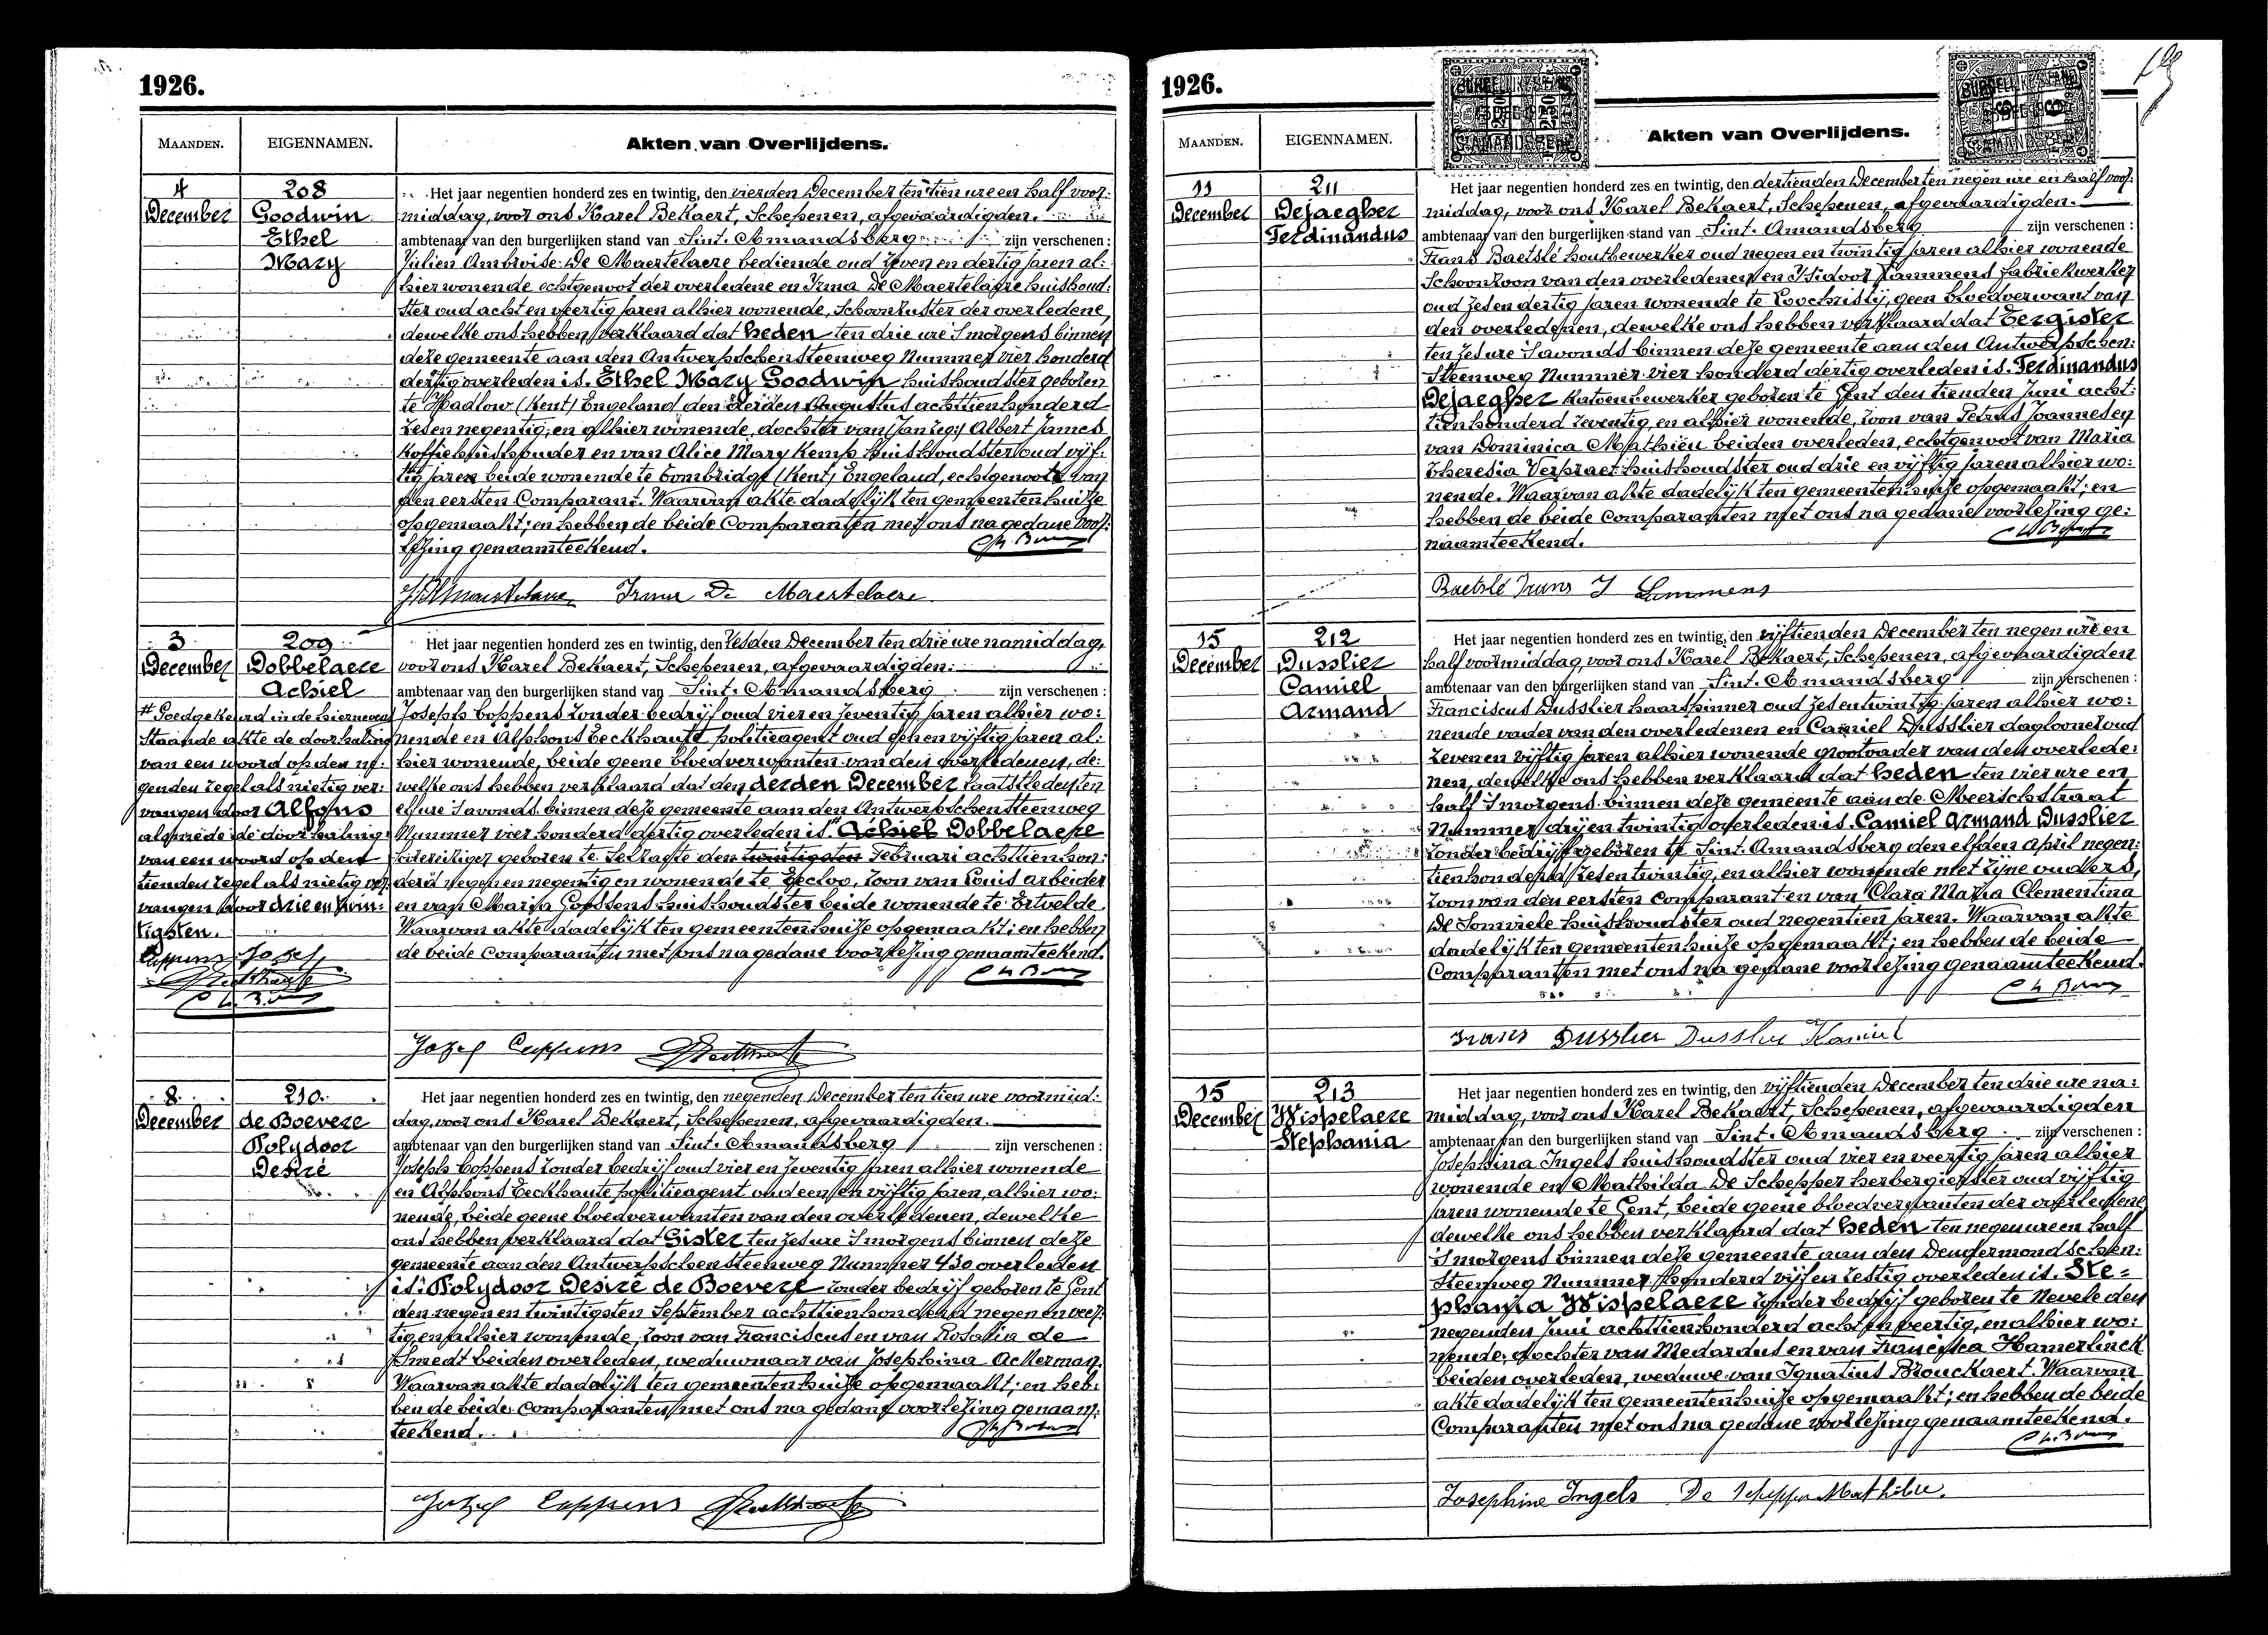 1926.
MAANDEN. EIGENNAMEN. Akten van Overlijdens.
4
December
208
Goodwin
Ethel
Mary
Het jaar negentien honderd zes en twintig, den vierden December ten tien ure en half voor=
middag, voor ons Karel Bekaert, Schepenen, afgevaardigden.
ambtenaar van den burgerlijken stand van Sint. Amandsberg zijn verschenen :
Julien Ambroise De Maertelaere bediende oud zeven en dertig jaren al=
hier wonende echtgenoot der overledene en Irma De Maertelaere huishoud=
ster oud acht en veertig jaren alhier wonende, schoonzuster der overledene,
dewelke ons hebben verklaard dat heden ten drie ure 's morgens binnen
deze gemeente aan den Antwerpschensteenweg Nummer vier honderd
dertig overleden is. Ethel Mary Goodwin huishoudster geboren
te Hadlow (Kent) Engeland den derden Augustus achttienhonderd
zes en negentig, en alhier wonende, dochter van Albert James
koffiehuishouder en van Alice Mary Kemp huishoudster oud vijf=
tig jaren beide wonende te Tombridge (Kent) Engeland, echtgenoote van
den eersten Comparant. Waarvan akte dadelijk ten gemeentenhuize
opgemaakt; en hebben de beide Comparanten met ons na gedane voor=
lezing genaamteekend.
Irma De Maertelaere
3
December
209
Dobbelaere
Achiel
Het jaar negentien honderd zes en twintig, den zesden December ten drie ure namiddag,
voor ons Karel Bekaert, Schepenen, afgevaardigden.
ambtenaar van den burgerlijken stand van Sint. Amandsberg zijn verschenen :
Joseph Coppens zonder bedrijf oud vier en zeventig jaren alhier wo=
nende en Alphons Eeckhaute politieagent oud een en vijftig jaren al=
hier wonende, beide geene bloedverwanten van den overledenen, de=
welke ons hebben verklaard dat den derden December laatstleden ten
elf ure 's avonds binnen deze gemeente aan den Antwerpschensteenweg
Nummer vier honderd dertig overleden is # Achiel Dobbelaere
geboren te Selzaete den twintigsten Februari achttienhon=
derd negen en negentig en wonende te Eecloo, zoon van Louis arbeider
en van Maria Cossens huishoudster beide wonende te Ertvelde.
Waarvan akte dadelijk ten gemeentenhuize opgemaakt; en hebben
de beide comparanten met ons na gedane voorlezing genaamteekend.
# Goedgekeurd in de hiernevens
staande akte de doorhaling
van een woord op den ne=
genden regel als nietig ver=
vangen door Alfons
alsmede de doorhaling
van een woord op den
tienden regel als nietig ver=
vangen door drie en twin=
tigsten.
Jozef Coppens
8
December
210.
de Boevere
Polydoor
Desiré
Het jaar negentien honderd zes en twintig, den negenden December ten tien ure voormid=
dag, voor ons Karel Bekaert, Schepenen, afgevaardigden.
ambtenaar van den burgerlijken stand van Sint. Amandsberg zijn verschenen :
Joseph Coppens zonder bedrijf oud vier en zeventig jaren alhier wonende
en Alphons Eeckhaute politieagent oud een en vijftig jaren, alhier wo=
nende, beide geene bloedverwanten van den overledenen, dewelke
ons hebben verklaard dat Gister ten zes ure 's morgens binnen deze
gemeente aan den Antwerpschensteenweg Nummer 430 overleden
is: Polydoor Desiré de Boevere zonder bedrijf geboren te Gent
den negen en twintigsten September achttienhonderd negen en veer=
tig en alhier wonende, zoon van Franciscus en van Rosalia de
Smedt beiden overleden, weduwnaar van Josephina Ackerman.
Waarvan akte dadelijk ten gemeentenhuize opgemaakt; en heb=
ben de beide comparanten met ons na gedane voorlezing genaam=
teekend.
Jozef Coppens
1926.
MAANDEN. EIGENNAMEN. Akten van Overlijdens.
11
December
211
Dejaegher
Ferdinandus
Het jaar negentien honderd zes en twintig, den dertienden December ten negen ure en half voor=
middag, voor ons Karel Bekaert, Schepenen, afgevaardigden.
ambtenaar van den burgerlijken stand van Sint. Amandsberg zijn verschenen :
Frans Baetslé houtbewerker oud negen en twintig jaren alhier wonende
Schoonzoon van den overledenen en Isidoor Lammens fabriekwerker
oud zes en dertig jaren wonende te Loochristy, geen bloedverwant van
den overledenen, dewelke ons hebben verklaard dat Eergister
ten zes ure 's avonds binnen deze gemeente aan den Antwerpschen=
steenweg Nummer vier honderd dertig overleden is. Ferdinandus
Dejaegher katoenbewerker geboren te Gent den tienden Juni acht=
tienhonderd zeventig, en alhier wonende, zoon van Petrus Joannes en
van Dominica Mathieu beiden overleden, echtgenoot van Maria
Theresia Verpraet huishoudster oud drie en vijftig jaren alhier wo=
nende. Waarvan akte dadelijk ten gemeentenhuize opgemaakt; en
hebben de beide comparanten met ons na gedane voorlezing ge=
naamteekend.
Baetslé Frans I Lammens
15
December
212
Dusslier
Camiel
Armand
Het jaar negentien honderd zes en twintig, den vijftienden December ten negen ure en
half voormiddag, voor ons Karel Bekaert, Schepenen, afgevaardigden
ambtenaar van den burgerlijken stand van Sint. Amandsberg zijn verschenen :
Franciscus Dusslier haarspinner oud zes en twintig jaren alhier wo=
nende vader van den overledenen en Camiel Dusslier daglooner oud
zeven en vijftig jaren alhier wonende grootvader van den overlede=
nen, dewelke ons hebben verklaard dat heden ten vier ure en
half 's morgens binnen deze gemeente aan de Meerschstraat
Nummer drij en twintig overleden is. Camiel Armand Dusslier
zonder bedrijf geboren te Sint. Amandsberg den elfden April negen=
tienhonderd zes en twintig, en alhier wonende met zijne ouders,
zoon van den eersten comparant en van Clara Maria Clementina
De Somviele huishoudster oud negentien jaren. Waarvan akte
dadelijk ten gemeentenhuize opgemaakt; en hebben de beide
Comparanten met ons na gedane voorlezing genaamteekend.
Frans Dusslier Dusslier Kamiel
15
December
213
Wispelaere
Stephania
Het jaar negentien honderd zes en twintig, den vijftienden December ten drie ure na=
middag, voor ons Karel Bekaert, Schepenen, afgevaardigden
ambtenaar van den burgerlijken stand van Sint. Amandsberg zijn verschenen :
Josephina Ingels huishoudster oud vier en veertig jaren alhier
wonende en Mathilda De Schepper herbergierster oud vijftig
jaren wonende te Gent, beide geene bloedverwanten der overledene
dewelke ons hebben verklaard dat heden ten negen ure en half
's morgens binnen deze gemeente aan den Dendermondschen=
steenweg Nummer honderd vijf en zestig overleden is. Ste=
phania Wispelaere zonder bedrijf geboren te Nevele den
negenden Juni achttienhonderd acht en veertig, en alhier wo=
nende, dochter van Medardus en van Francisca Hamerlinck
beiden overleden, weduwe van Ignatius Brouckaert. Waarvan
akte dadelijk ten gemeentenhuize opgemaakt; en hebben de beide
Comparanten met ons na gedane voorlezing genaamteekend.
Josephine Ingels De Schepper Mathilde.